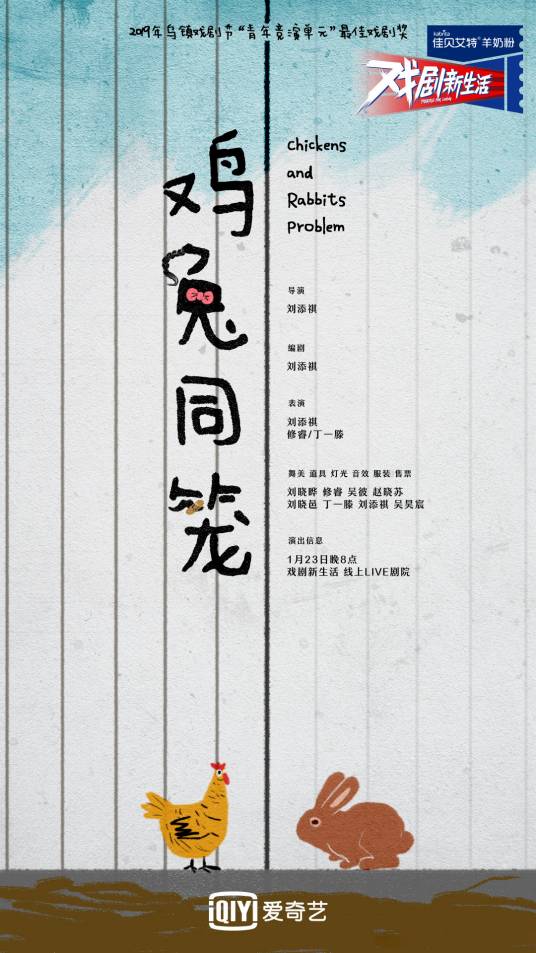 2019年乌镇戏剧节“青年竞演单元”最佳戏剧奖
kabrita
佳贝艾特®羊奶粉
戏剧新生活
鸡兔同笼
Chickens
and
Rabbits
Problem
导演
刘添祺
编剧
刘添祺
表演
刘添祺
修睿/丁一滕
舞美 道具 灯光 音效 服装 售票
刘晓晔 修睿 吴彼 赵晓苏
刘晓邑 丁一滕 刘添祺 吴昊宸
演出信息
1月23日晚8点
戏剧新生活 线上LIVE剧院
iQIYI 爱奇艺